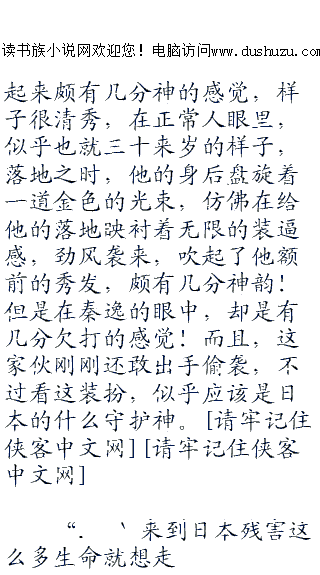 读书族小说网欢迎您！电脑访问www.dushuzu.com
起来颇有几分神的感觉，样
子很清秀，在正常人眼里，
似乎也就三十来岁的样子，
落地之时，他的身后盘旋着
一道金色的光束，仿佛在给
他的落地映衬着无限的装逼
感，劲风袭来，吹起了他额
前的秀发，颇有几分神韵！
但是在秦逸的眼中，却是有
几分欠打的感觉！而且，这
家伙刚刚还敢出手偷袭，不
过看这装扮，似乎应该是日
本的什么守护神。[请牢记住
侠客中文网][请牢记住侠客
中文网]
“．｀来到日本残害这
么多生命就想走